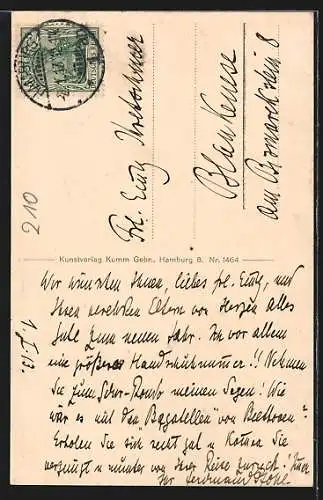 Frl. Emmy
Blankenese
am Bismarckstein 8
210
Kunstverlag Kumm Gebr., Hamburg B. Nr. 1464
1.I.13.
Wir wünschen Ihnen, liebes Frl. Emmy, und
Ihren verehrten Eltern von Herzen alles
Gute zum neuen Jahr. Ihr vor allem
eine größere Handschuhnummer!! Nehmen
Sie zum meinen Segen! Wie
wär es mit den Bagatellen von Beethoven?
Erholen Sie sich recht gut u. kommen Sie
vergnügt u. munter von Ihrer Reise zurück!
Ihr Ferdinand